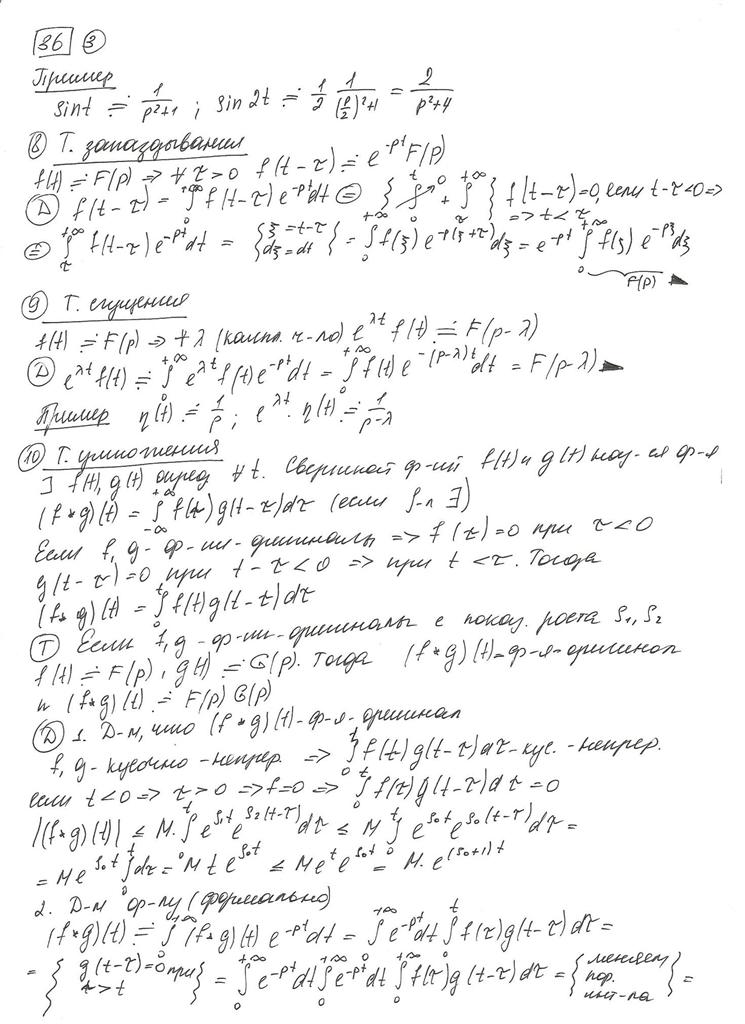 36 3
Пример
sin t ≓ 1/(p²+1) ; sin 2t ≓ 1/2 · 1/((p/2)²+1) = 2/(p²+4)
8 Т. запаздывания
f(t) ≓ F(p) => ∀ τ>0 f(t-τ) ≓ e^{-pτ} F(p)
Д f(t-τ) = ∫_0^{+∞} f(t-τ) e^{-pt} dt = { ∫_0^τ → 0 + ∫_τ^{+∞} } f(t-τ)=0, если t-τ<0 =>
=> t<τ
= ∫_τ^{+∞} f(t-τ) e^{-pt} dt = { ξ=t-τ dξ=dt } = ∫_0^{+∞} f(ξ) e^{-p(ξ+τ)} dξ = e^{-pτ} ∫_0^{+∞} f(ξ) e^{-pξ} dξ
F(p)
9 Т. смещения
f(t) ≓ F(p) => ∀ λ (компл. ч-ло) e^{λt} f(t) ≓ F(p-λ)
Д e^{λt} f(t) ≓ ∫_0^{+∞} e^{λt} f(t) e^{-pt} dt = ∫_0^{+∞} f(t) e^{-(p-λ)t} dt = F(p-λ)
Пример η(t) ≓ 1/p ; e^{λt}·η(t) ≓ 1/(p-λ)
10 Т. умножения
∃ f(t), g(t) опред ∀ t. Сверткой ф-ий f(t) и g(t) наз-ся ф-я
(f*g)(t) = ∫_{-∞}^{+∞} f(τ) g(t-τ) dτ (если ∫-л ∃)
Если f, g - ф-ии-оригиналы => f(τ)=0 при τ<0
g(t-τ)=0 при t-τ<0 => при t<τ. Тогда
(f*g)(t) = ∫_0^t f(t) g(t-τ) dτ
Т Если f, g - ф-ии-оригиналы с показ. роста S₁, S₂
f(t) ≓ F(p), g(t) ≓ G(p). Тогда (f*g)(t) = ф-я-оригинал
и (f*g)(t) ≓ F(p) G(p)
Д 1. Д-м, что (f*g)(t) - ф-я-оригинал
f, g - кусочно-непрер. => ∫_0^t f(t) g(t-τ) dτ - кус.-непрер.
если t<0 => τ>0 => f=0 => ∫_0^t f(τ) g(t-τ) dτ = 0
|(f*g)(t)| ≤ M·∫_0^t e^{S₁t} e^{S₂(t-τ)} dτ ≤ M ∫_0^t e^{S₀t} e^{S₀(t-τ)} dτ =
= M e^{S₀t} ∫_0^t dτ = M t e^{S₀t} ≤ M e^t e^{S₀t} = M·e^{(S₀+1)t}
2. Д-м ф-лу (формально)
(f*g)(t) ≓ ∫_0^{+∞} (f*g)(t) e^{-pt} dt = ∫_0^{+∞} e^{-pt} dt ∫_0^t f(τ) g(t-τ) dτ =
= { g(t-τ)=0 при τ>t } = ∫_0^{+∞} e^{-pt} dt ∫_0^{+∞} e^{-pt} dt ∫_0^{+∞} f(τ) g(t-τ) dτ = { меняем пор. инт-ла } =